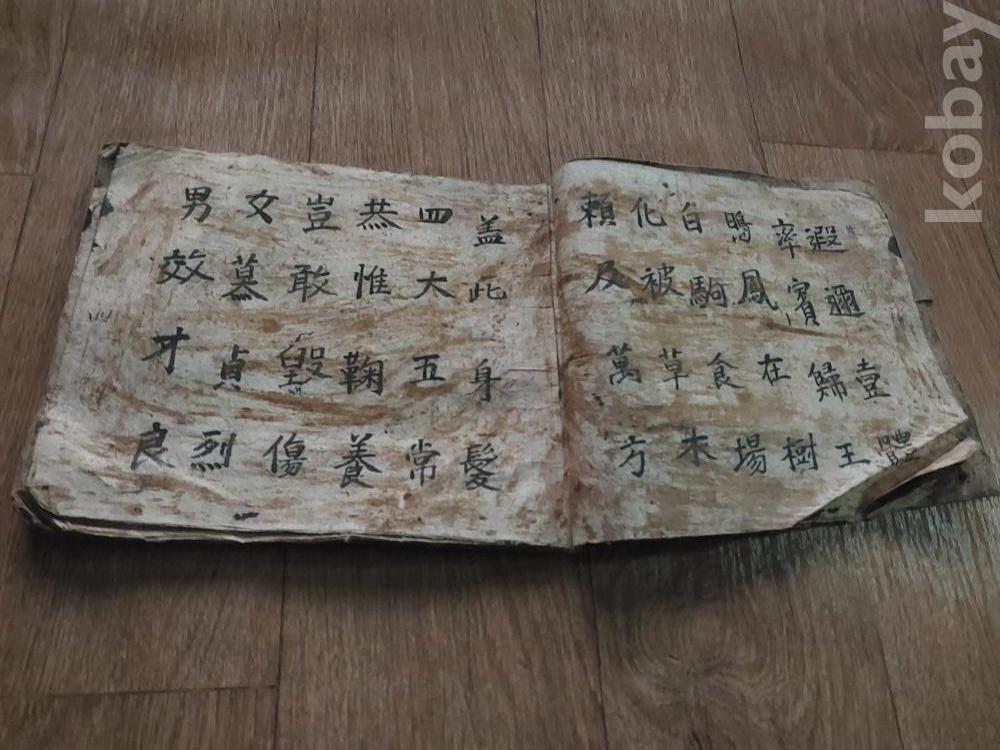 遐邇壹體
率賓歸王
鳴鳳在樹
白駒食場
化被草木
賴及萬方
盖此身髮
四大五常
恭惟鞠養
豈敢毀傷
女慕貞烈
男效才良
kobay